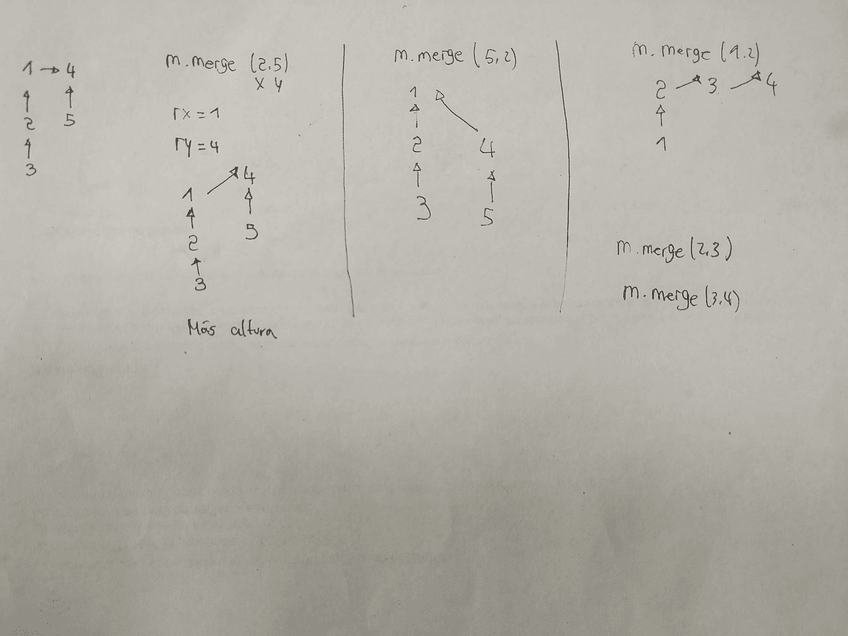 1 → 4
↑ ↑
2 5
↑
3
m.merge (2,5)
x y
rx = 1
ry = 4
1 → 4
↑ ↑
2 5
↑
3
Más altura
m.merge (5,2)
1
↑ ↖
2 4
↑ ↑
3 5
m.merge (1.2)
2 → 3 → 4
↑
1
m.merge (2,3)
m.merge (3,4)